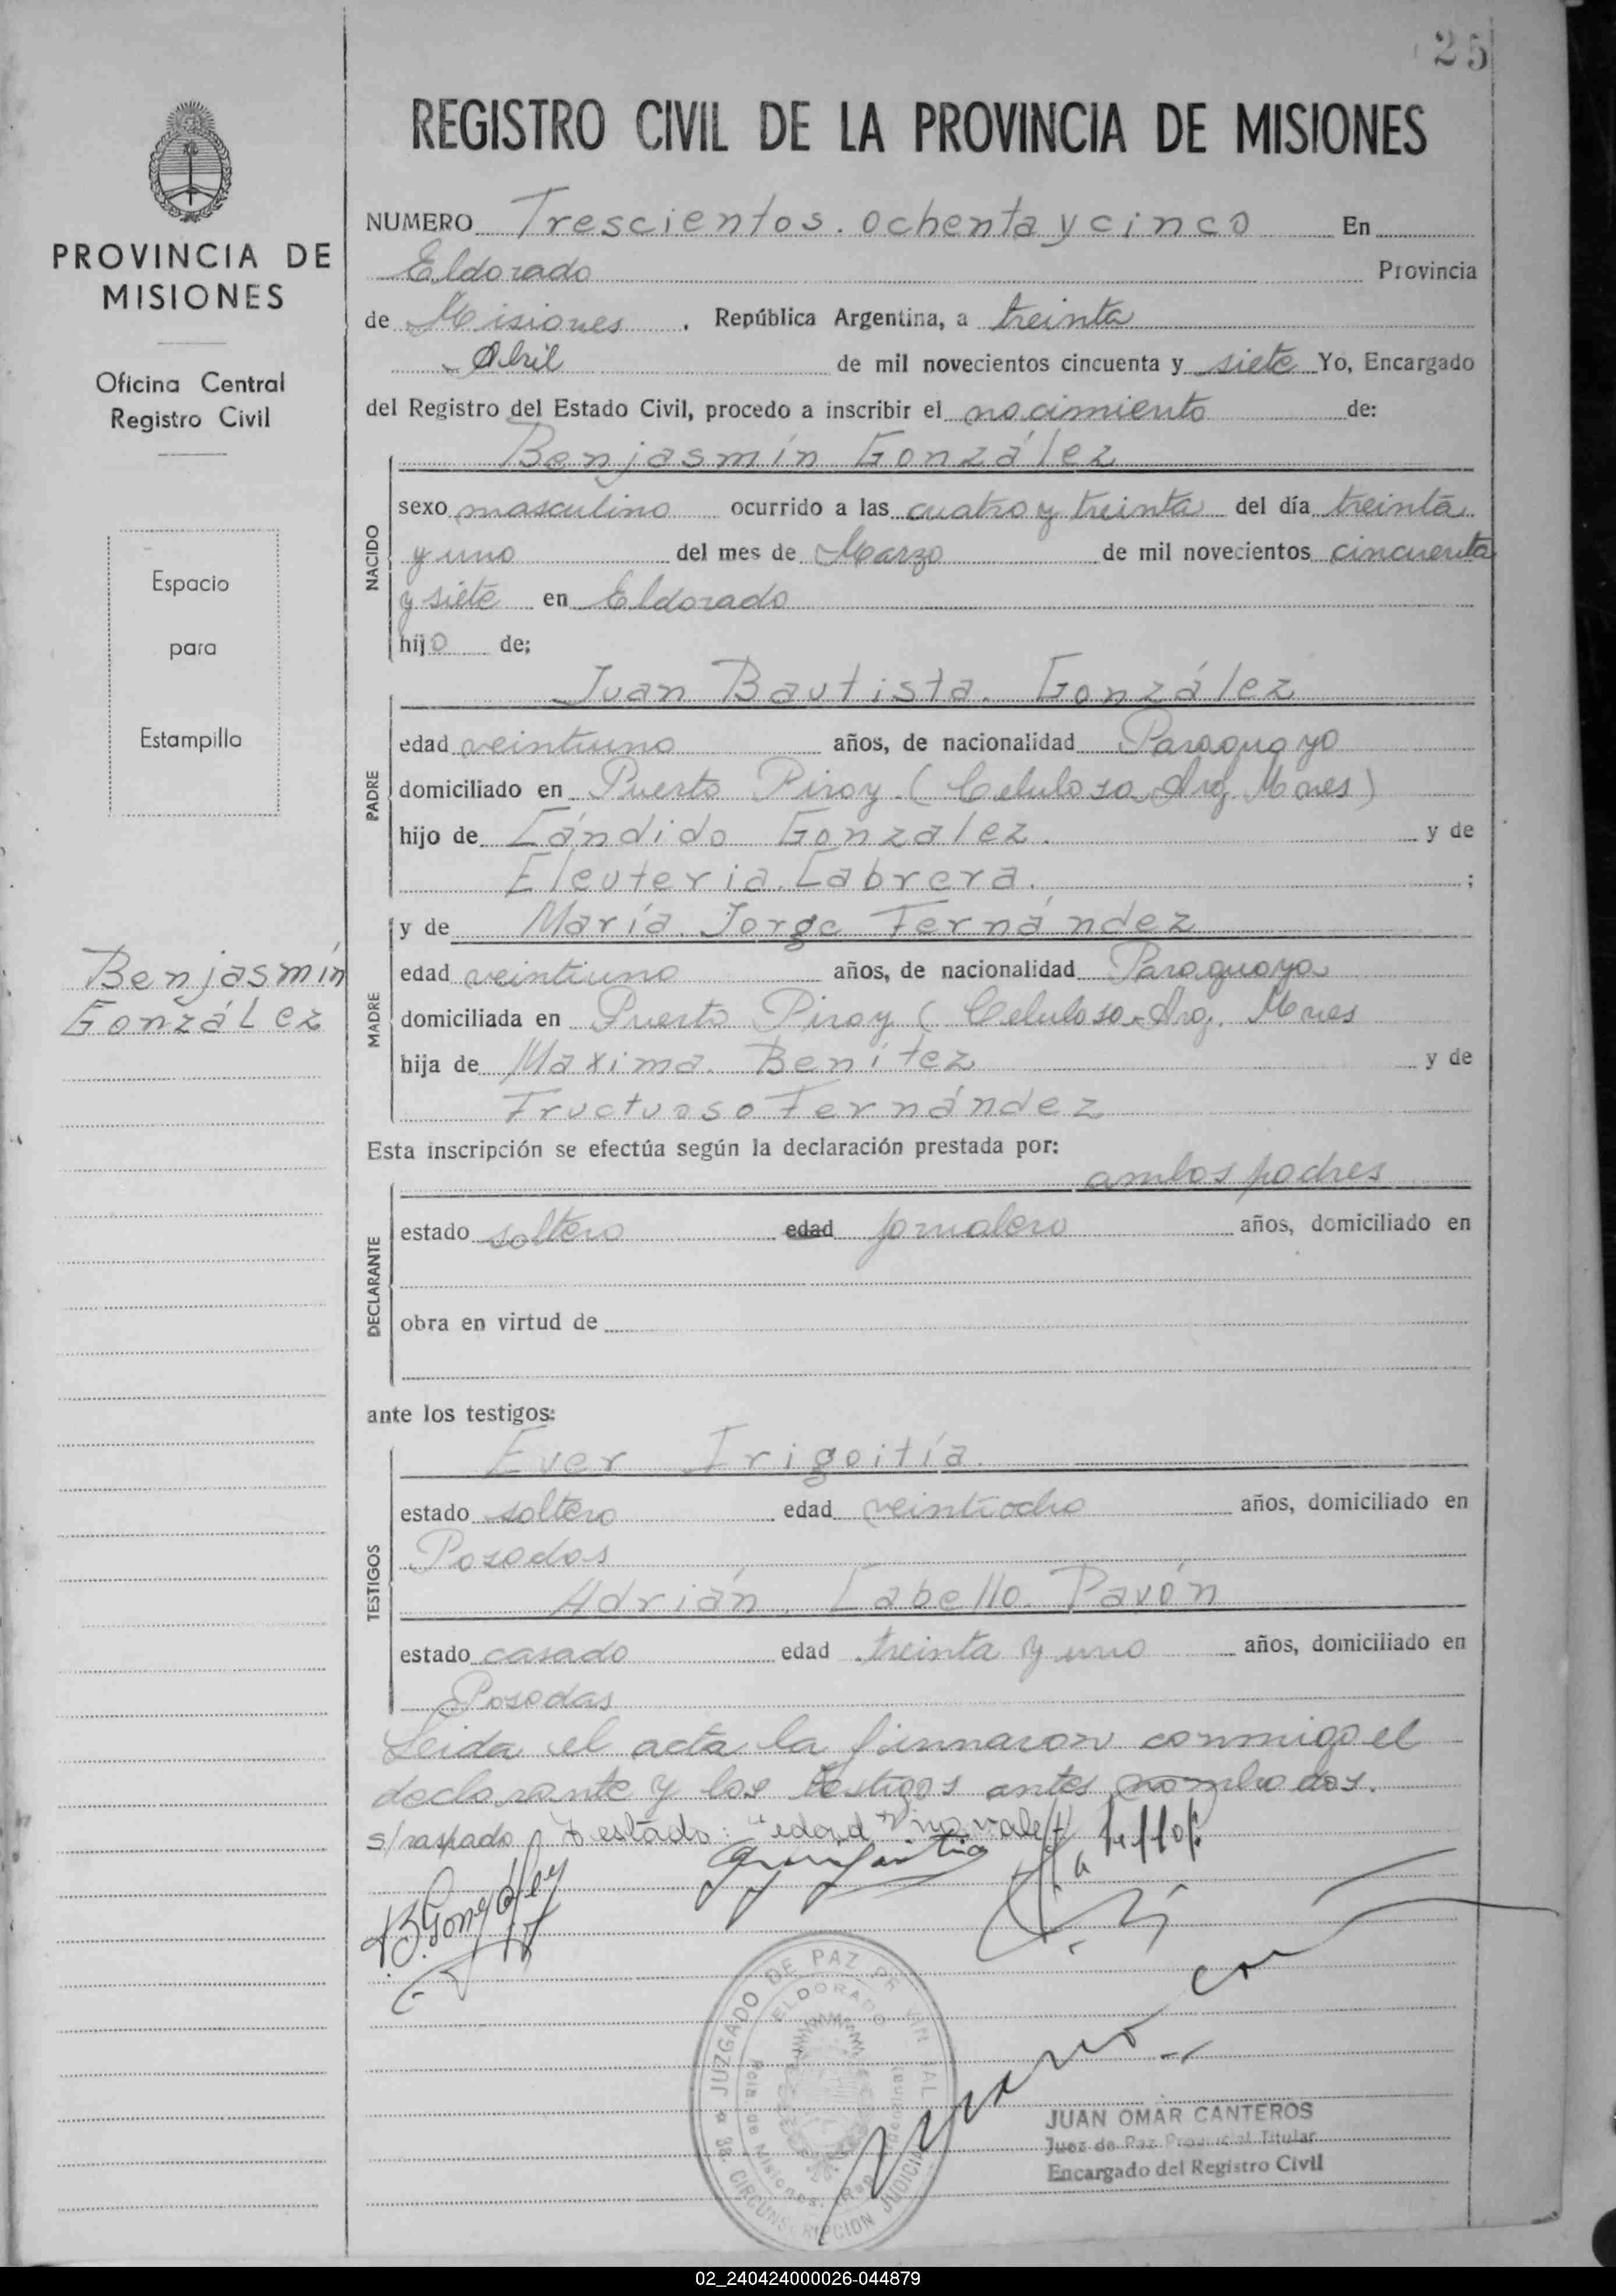 25
REGISTRO CIVIL DE LA PROVINCIA DE MISIONES
PROVINCIA DE
MISIONES
Oficina Central
Registro Civil
Espacio
para
Estampilla
Benjasmín
González
NUMERO Trescientos. ochenta y cinco En
Eldorado Provincia
de Misiones, República Argentina, a treinta
Abril de mil novecientos cincuenta y siete Yo, Encargado
del Registro del Estado Civil, procedo a inscribir el nacimiento de:
Benjasmín González
NACIDO
sexo masculino ocurrido a las cuatro y treinta del día treinta
y uno del mes de Marzo de mil novecientos cincuenta
y siete en Eldorado
hijo de;
Juan Bautista. González
PADRE
edad veintiuno años, de nacionalidad Paraguayo
domiciliado en Puerto Piray (Celulosa Arg. Mones)
hijo de Cándido González. y de
Eleuteria. Cabrera. ;
y de María. Jorge Fernández
MADRE
edad veintiuno años, de nacionalidad Paraguaya
domiciliada en Puerto Piray (Celulosa Arg. Mones
hija de Maxima. Benítez y de
Fructuoso Fernández
Esta inscripción se efectúa según la declaración prestada por:
ambos padres
DECLARANTE
estado soltero edad jornalero años, domiciliado en
obra en virtud de
ante los testigos:
Ever Irigoitía.
TESTIGOS
estado soltero edad veintiocho años, domiciliado en
Posadas
Adrián. Cabello. Pavón
estado casado edad treinta y uno años, domiciliado en
Posadas
Leida el acta la firmaron conmigo el
declarante y los testigos antes nombrados.
s/raspado testado: "edad" no vale
JBGonzalez
JUZGADO DE PAZ
ELDORADO
Pcia. de Misiones
CIRCUNSCRIPCION JUDICIAL
JUAN OMAR CANTEROS
Juez de Paz Provincial Titular
Encargado del Registro Civil
02_240424000026-044879